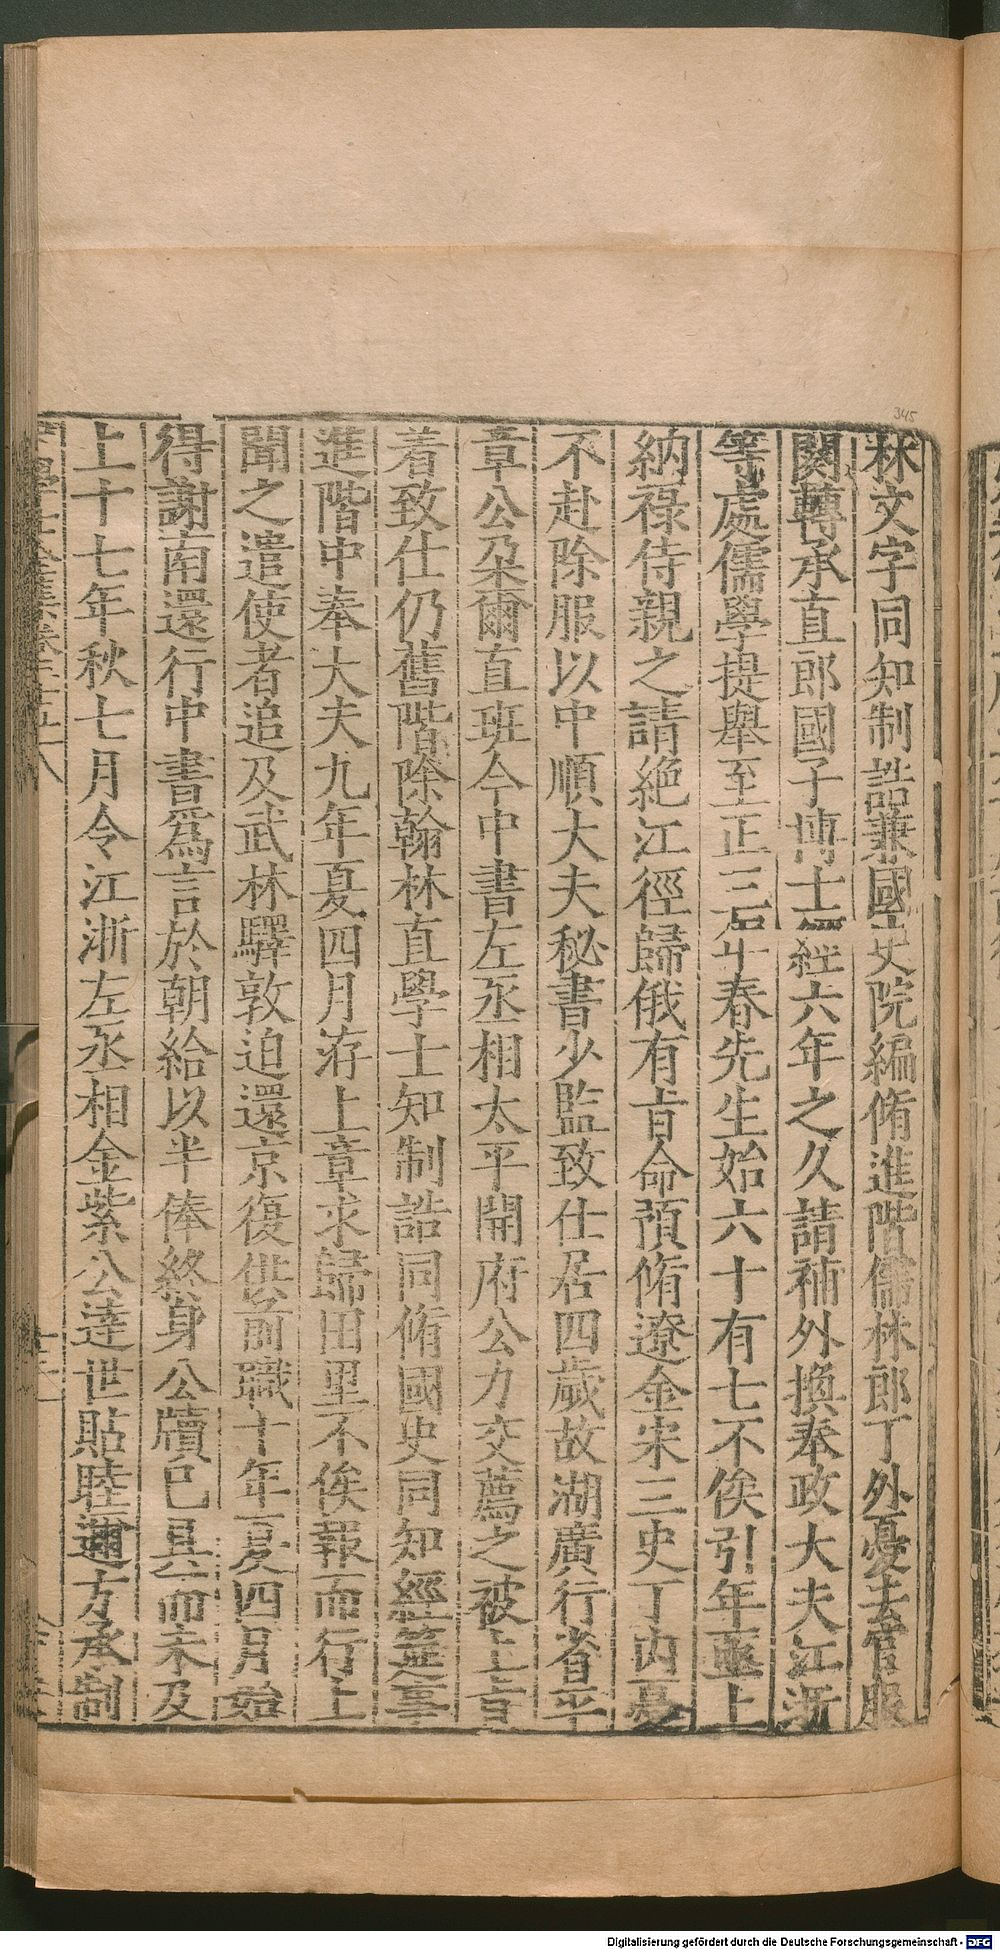 345
林文字同知制誥兼國史院編脩進階儒林郎丁外憂去官服
闋轉承直郎國子博士經六年之久請補外換奉政大夫江浙
等處儒學提舉至正三年春先生始六十有七不俟引年亟上
納祿侍親之請絶江徑歸俄有旨命預脩遼金宋三史丁内憂
不赴除服以中順大夫秘書少監致仕居四歲故湖廣行省平
章公朶爾直班今中書左丞相太平開府公力交薦之被上旨
着致仕仍舊階除翰林直學士知制誥同脩國史同知經筵事
進階中奉大夫九年夏四月洊上章求歸田里不俟報而行上
聞之遣使者追及武林驛敦迫還京復供前職十年夏四月始
得謝南還行中書爲言於朝給以半俸終身公牘已具而未及
上十七年秋七月令江浙左丞相金紫公達世貼睦邇方承制
Digitalisierung gefördert durch die Deutsche Forschungsgemeinschaft - DFG